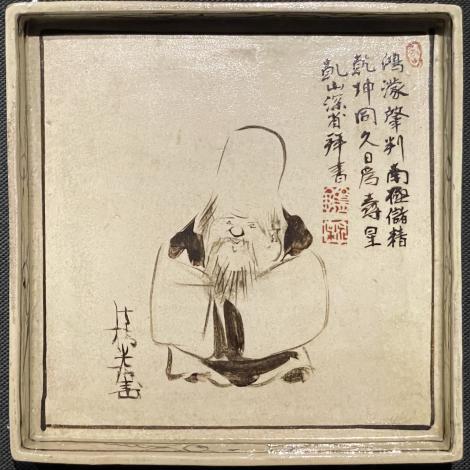 鴻濛肇判南極儲精
乾坤同久曰為壽星
乾山深省拜書
法橋光琳畫